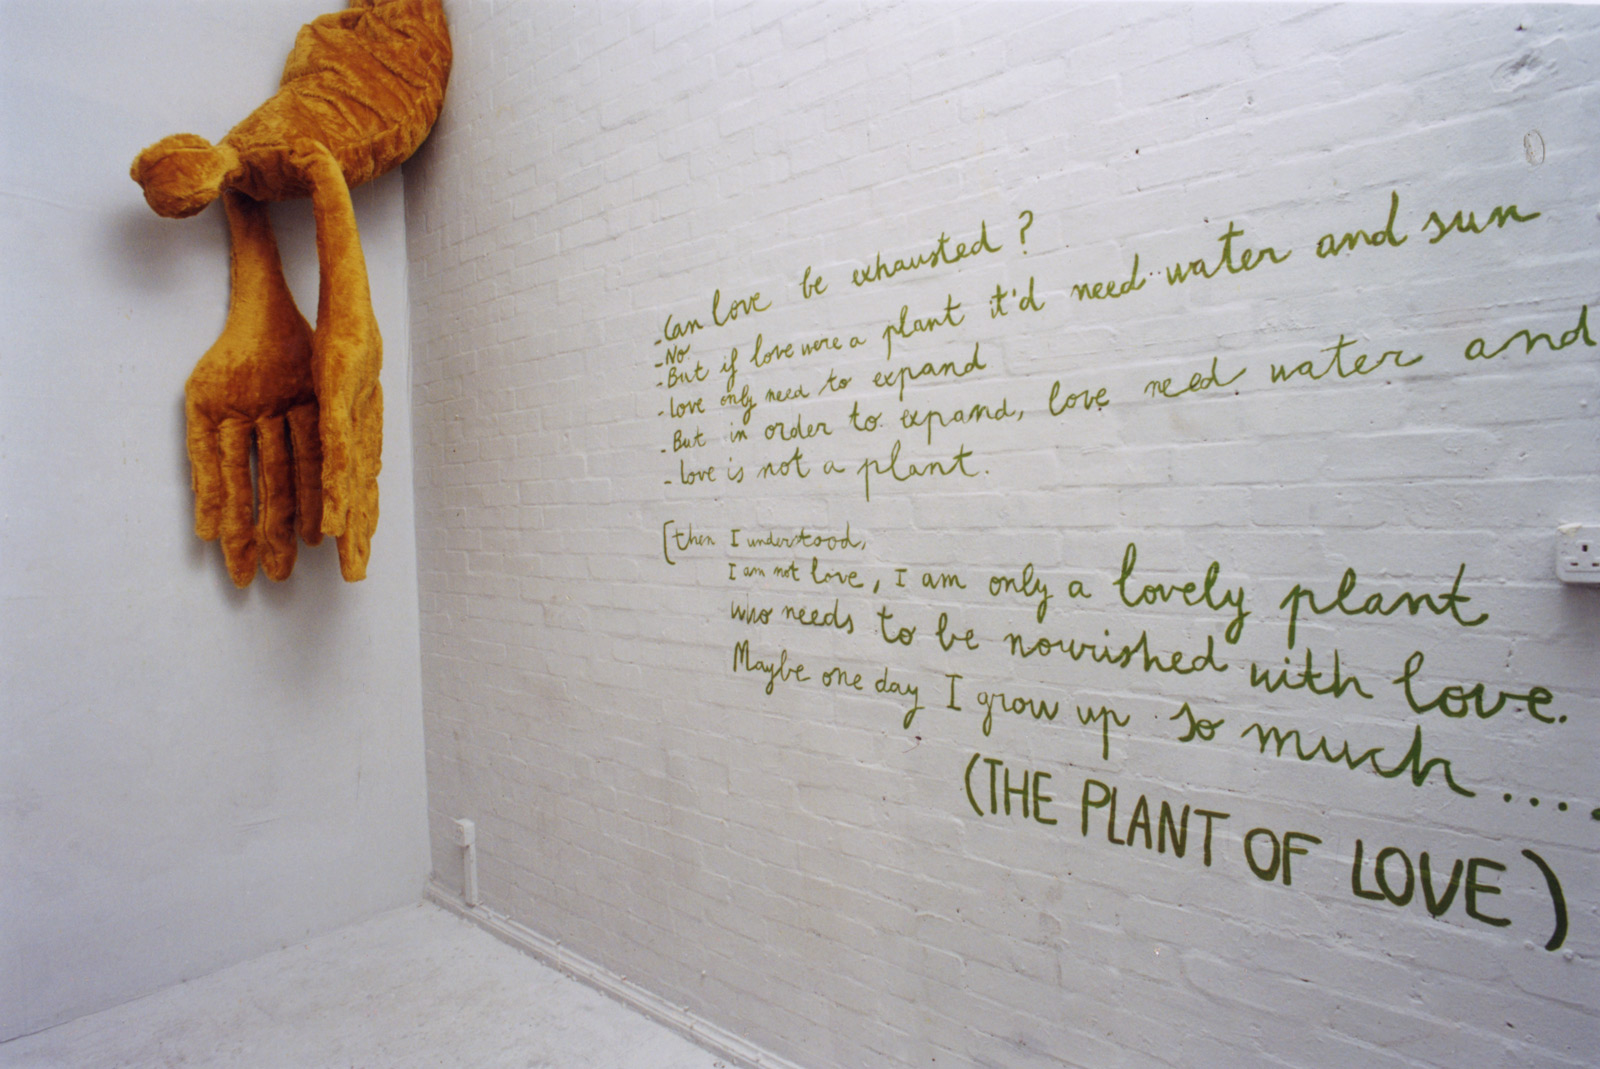 - Can love be exhausted ?
- No
- But if love were a plant it'd need water and sun
- love only need to expand
- But in order to expand, love need water and
- love is not a plant.
[then I understood,
I am not love, I am only a lovely plant
who needs to be nourished with love.
Maybe one day I grow up so much.....
(THE PLANT OF LOVE)